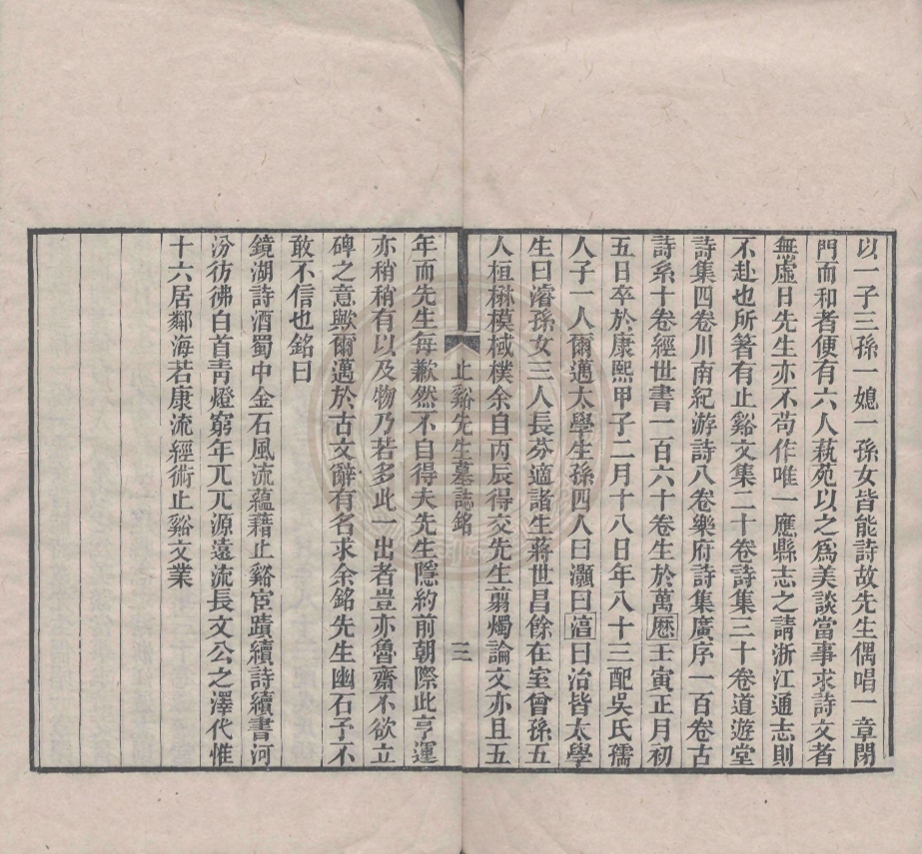 以一子三孫一媳一孫女皆能詩故先生偶唱一章閉
門而和者便有六人蓺苑以之爲美談當事求詩文者
無虛日先生亦不苟作唯一應縣志之請浙江通志則
不赴也所著有止谿文集二十卷詩集三十卷道遊堂
詩集四卷川南紀游詩八卷樂府詩集廣序一百卷古
詩系十卷經世書一百六十卷生於萬厯壬寅正月初
五日卒於康熙甲子二月十八日年八十三配吳氏孺
人子一人爾邁太學生孫四人曰灝曰濇曰治皆太學
生曰濬孫女三人長芬適諸生蔣世昌餘在室曾孫五
人桓楙模棫樸余自丙辰得交先生翦燭論文亦且五
止谿先生墓誌銘 三
年而先生每歉然不自得夫先生隱約前朝際此亨運
亦稍稍有以及物乃若多此一出者豈亦魯齋不欲立
碑之意歟爾邁於古文辭有名求余銘先生幽石予不
敢不信也銘曰
鏡湖詩酒蜀中金石風流蘊藉止谿宦蹟續詩續書河
汾彷彿白首靑燈窮年兀兀源遠流長文公之澤代惟
十六居鄰海若康流經術止谿文業